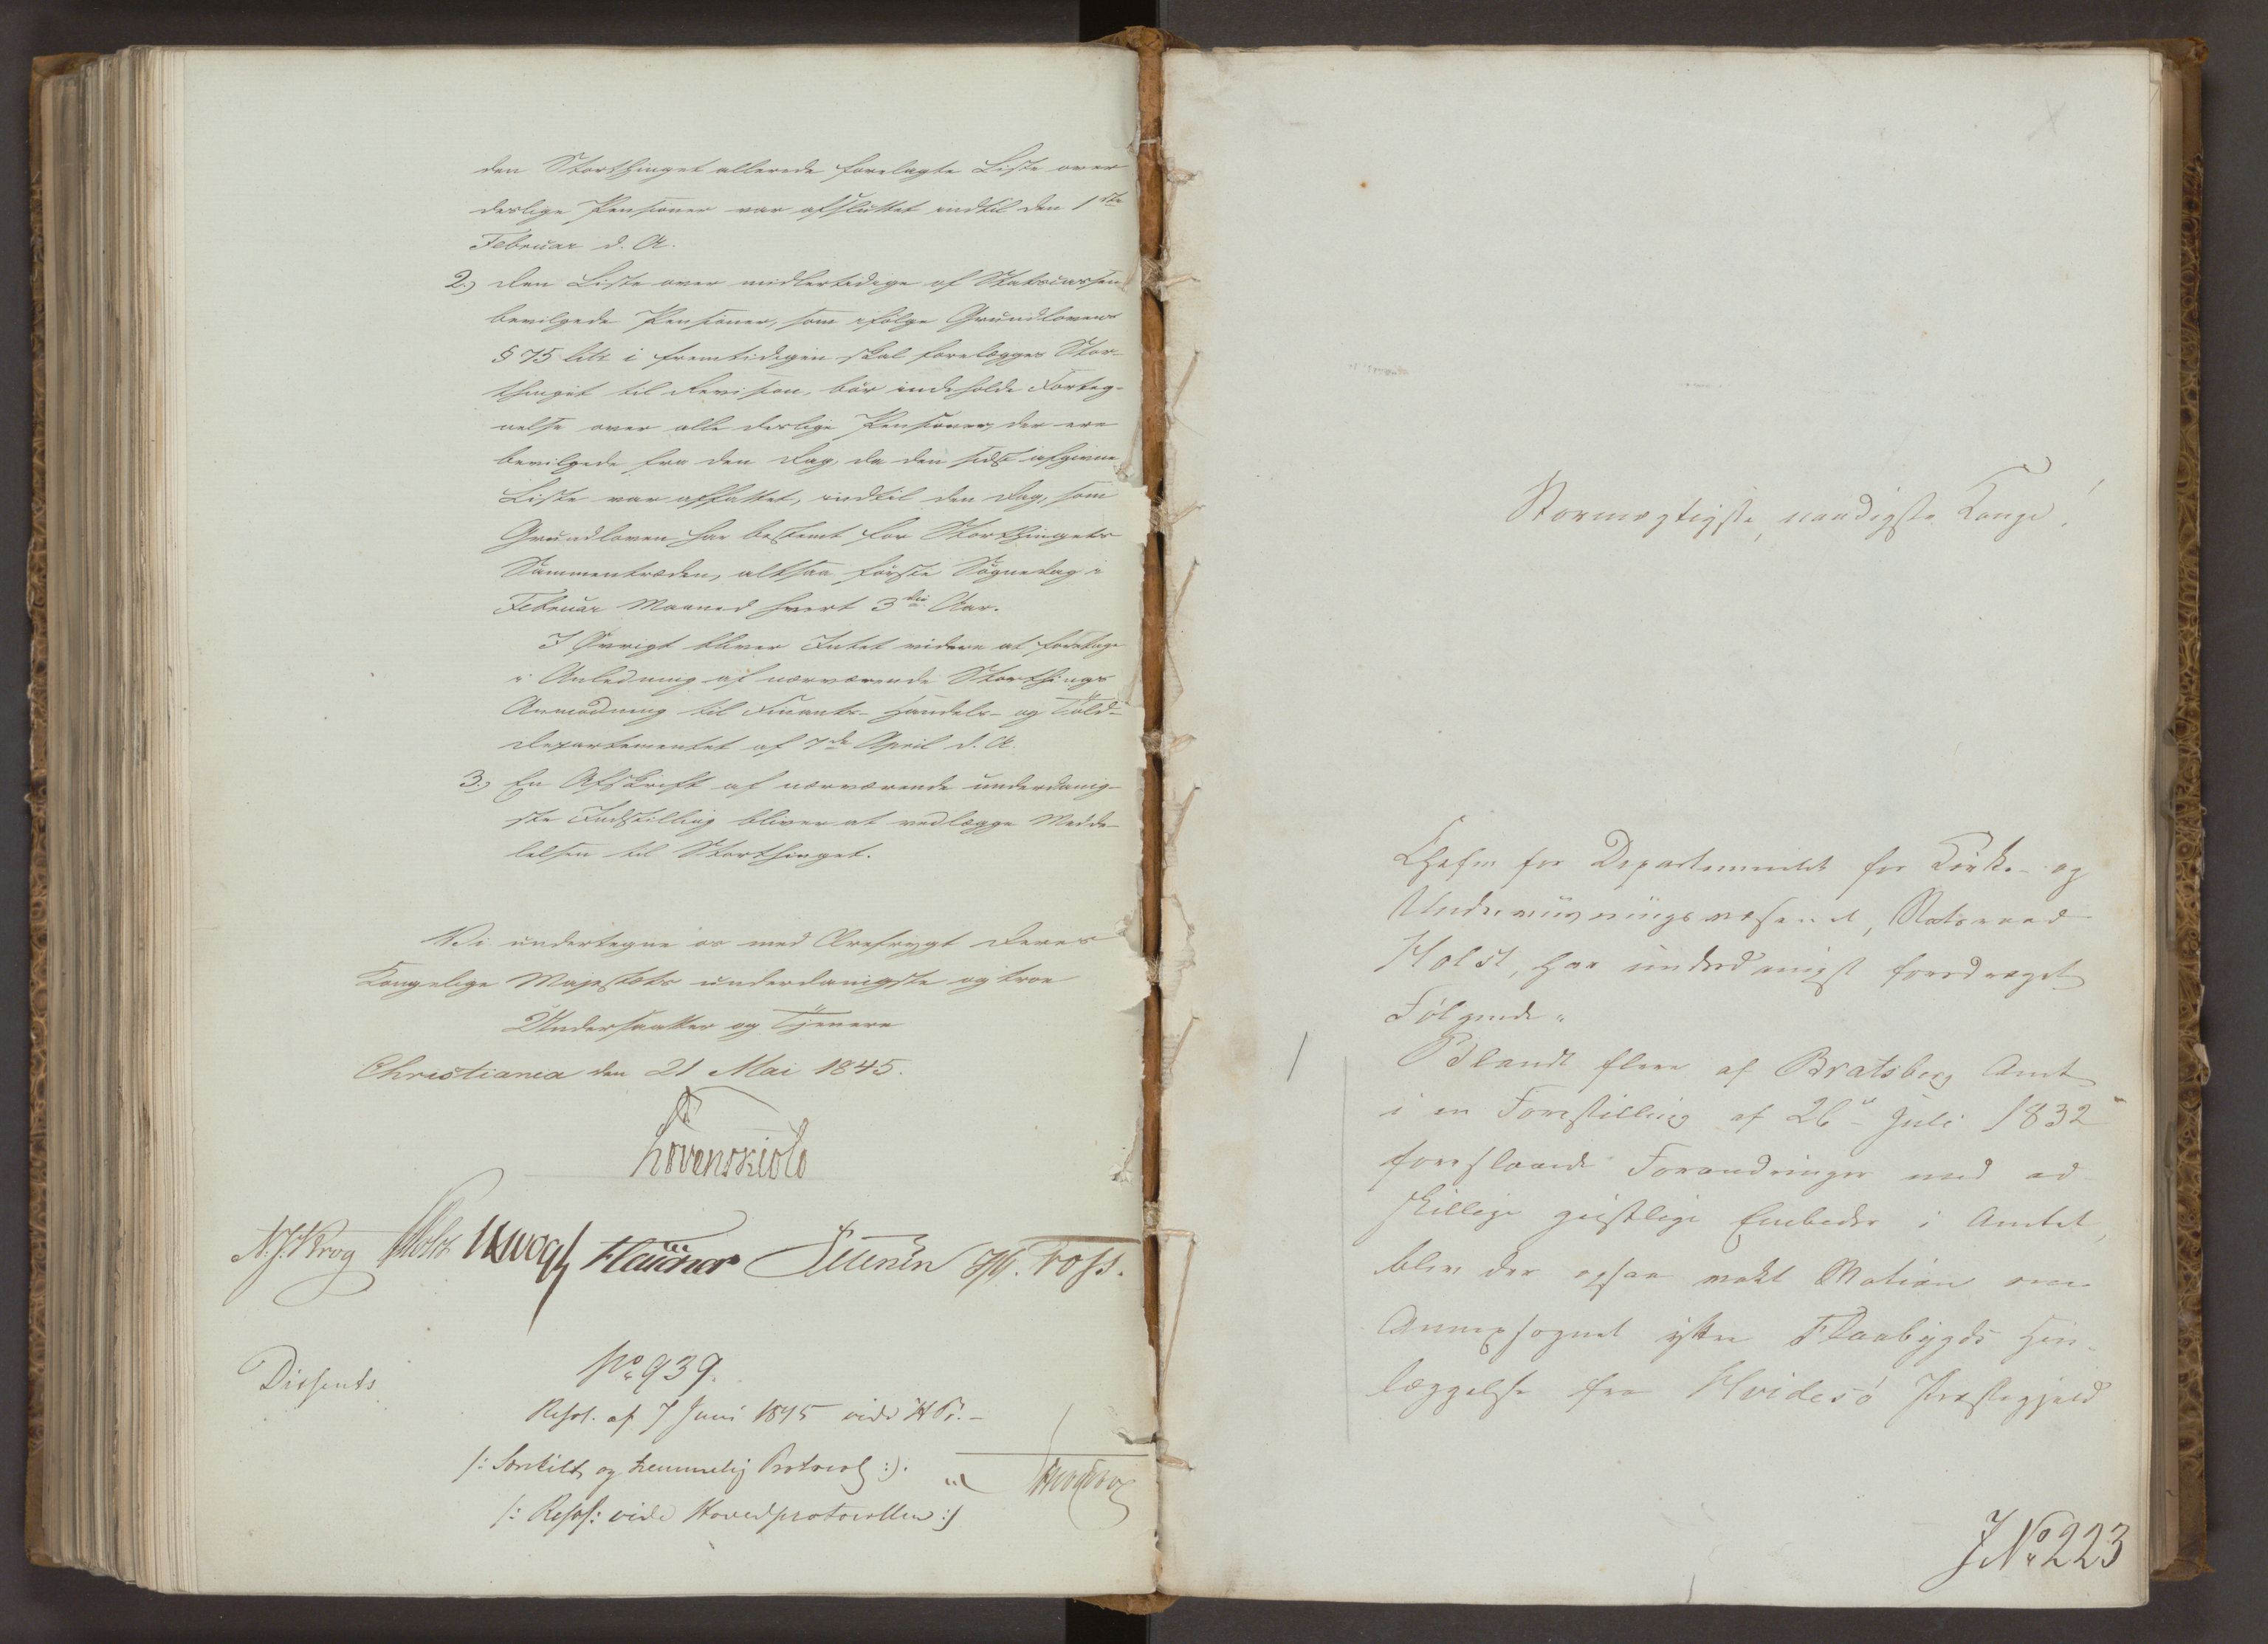 den Storthinget allerede forelagte Liste over
deslige Pensioner var afsluttet indtil den 1ste
Februar d. A.
2.) den Liste over midlertidige af Statscassen
bevilgede Pensioner, som ifølge Grundlovens
§ 75 litr i fremtidigen skal forelægges Stor-
thinget til Revision, bør indeholde Forteg-
nelse over alle deslige Pensioner, der ere
bevilgede fra den Dag, da den sidst afgivne
Liste var affattet, indtil den Dag, som
Grundloven har bestemt for Storthingets
Sammentræden, altsaa første Søgnedag i
Februar Maaned hvert 3die Aar.
I Øvrigt bliver Intet videre at foretage
i Anledning af nærværende Storthings
Anmodning til Finants- Handels- og Told-
departementet af 7de April d. A.
3.) En Afskrift af nærværende underdanig-
ste Indstilling bliver at vedlægge Medde-
lelsen til Storthinget.
Vi undertegne os med Ærefrygt Deres
Kongelige Majestæts underdanigste og troe
Undersaatter og Tjenere
Christiania den 21 Mai 1845.
Løvenskiold
N. J. Krog Holst Vogt Flaüner Petersen Foss.
Dissents
No 939.
Resol. af 7 Juni 1845 vide H Pr. -
/: Særskilt og hemmelig Protocol :/.
/: Resol: vide Hovedprotocollen :/
Stormægtigste, naadigste Konge!
Chefen for Departementet for Kirke- og
Underviisningsvæsenet, Statsraad
Holst, har underdanigst foredraget
Følgende:
Blandt flere af Bratsberg Amt
i en Forestilling af 26de Juli 1832
foreslaaede Forandringer med ad-
skillige geistlige Embeder i Amtet,
blev der ogsaa vakt Motion om
Annexsognet yttre Flaabygds Hen-
læggelse fra Hvidesø Præstegjeld
J No 223